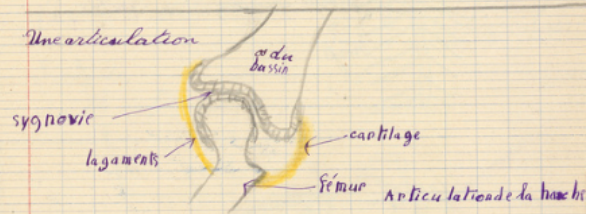 Une articulation
os du
bassin
sygnovie
cartilage
lagaments
fémur
Articulation de la hanche